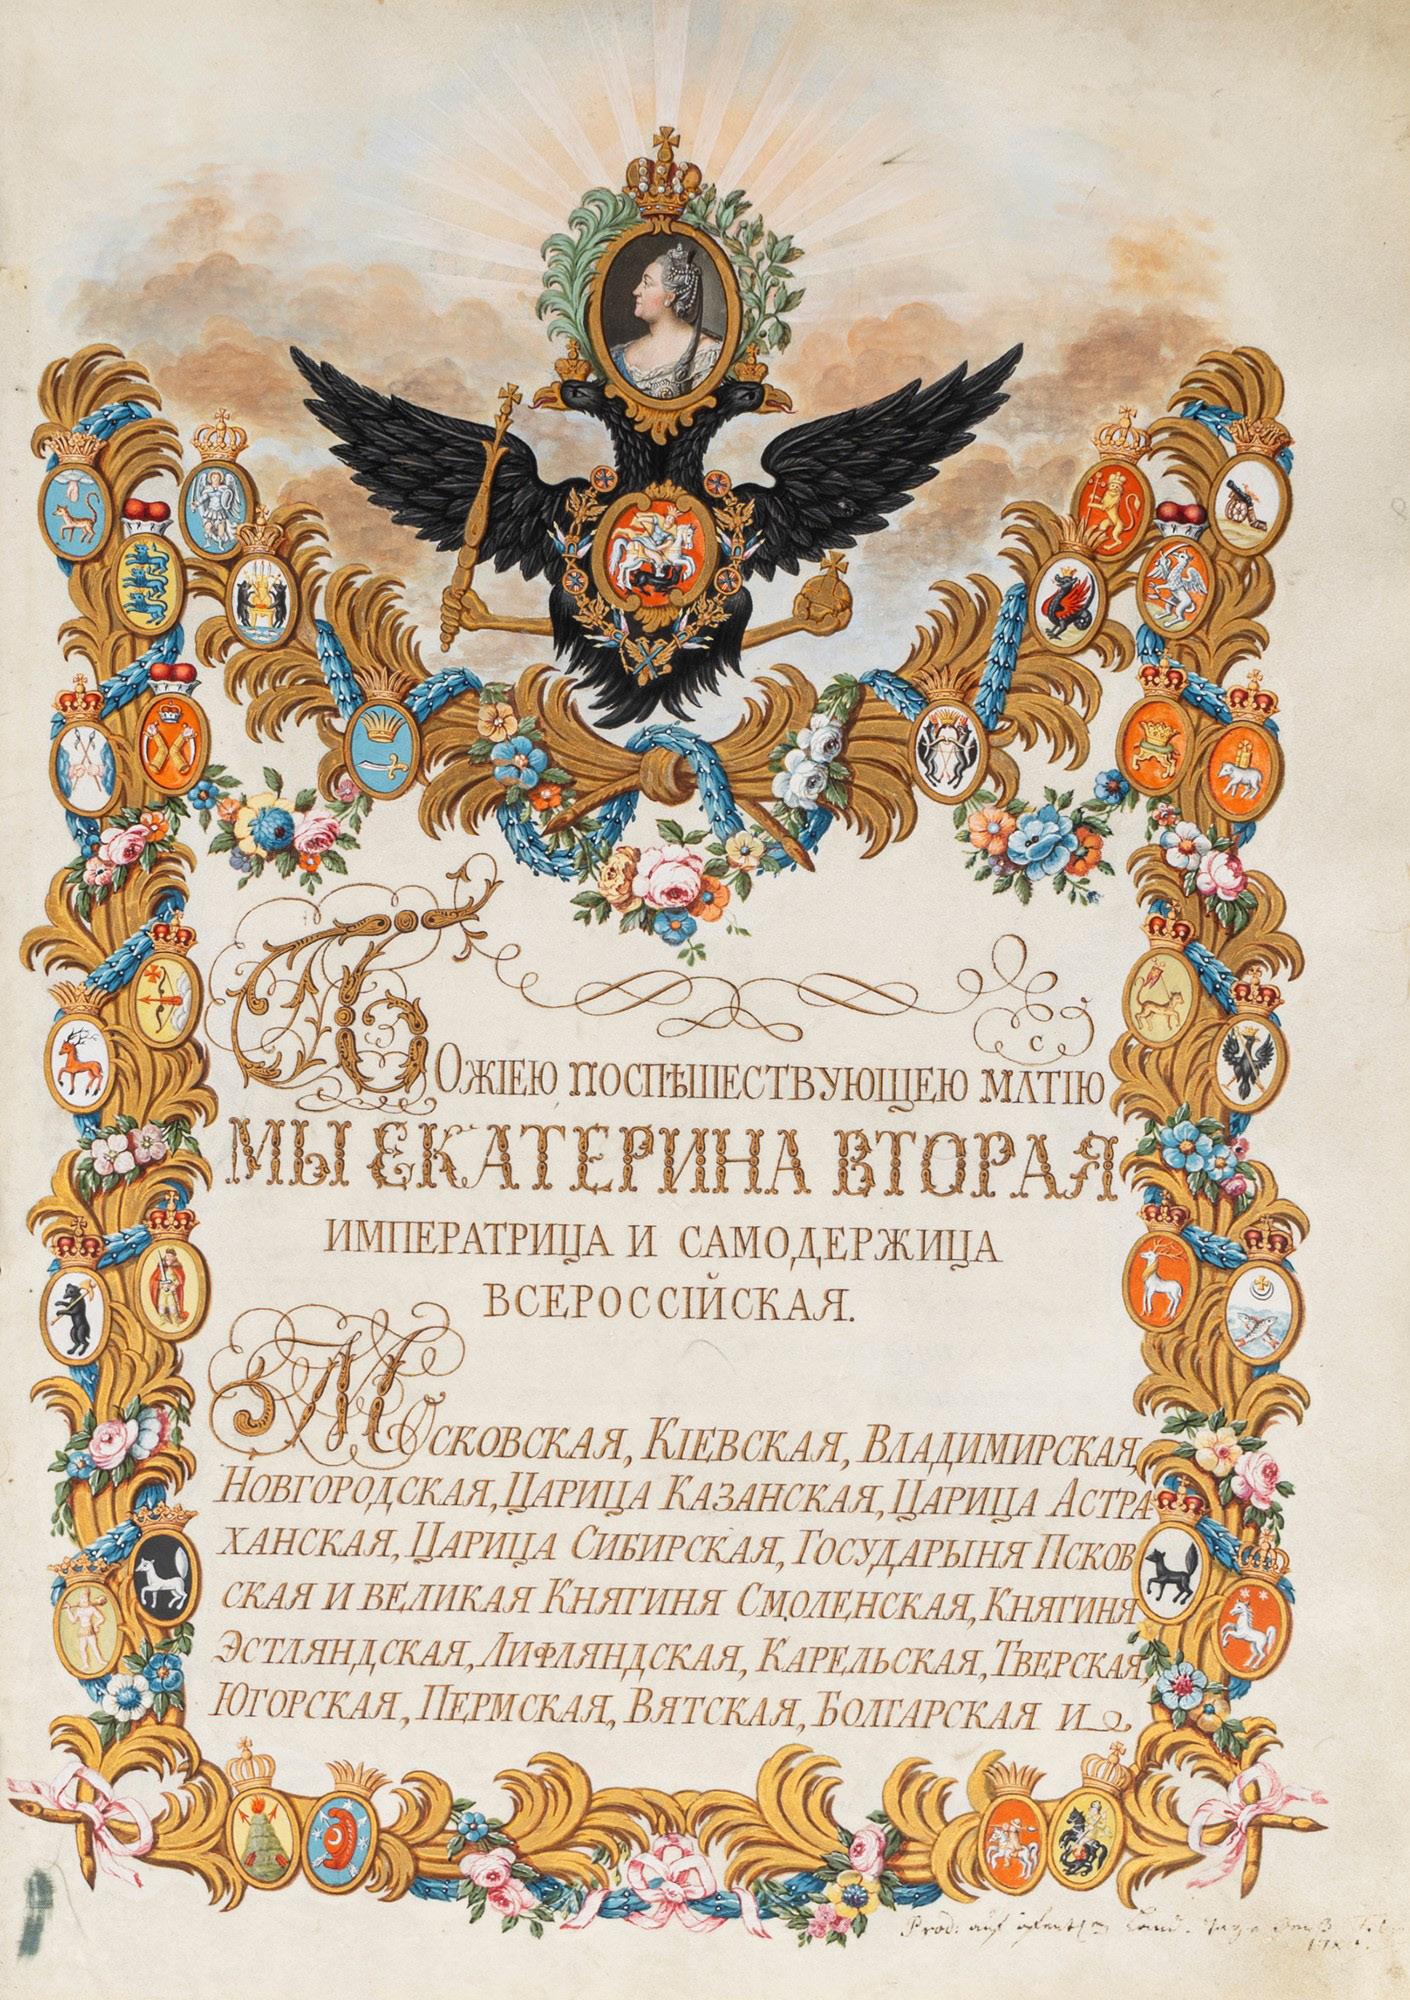 БОЖІЕЮ ПОСПѢШЕСТВУЮЩЕЮ МЛⷭ҇ТІЮ
МЫ ЕКАТЕРИНА ВТОРАЯ
ИМПЕРАТРИЦА И САМОДЕРЖИЦА
ВСЕРОССІЙСКАЯ.
МОСКОВСКАЯ, КІЕВСКАЯ, ВЛАДИМИРСКАЯ,
НОВГОРОДСКАЯ, ЦАРИЦА КАЗАНСКАЯ, ЦАРИЦА АСТРА
ХАНСКАЯ, ЦАРИЦА СИБИРСКАЯ, ГОСУДАРЫНЯ ПСКОВ
СКАЯ И ВЕЛИКАЯ КНЯГИНЯ СМОЛЕНСКАЯ, КНЯГИНЯ
ЭСТЛЯНДСКАЯ, ЛИФЛЯНДСКАЯ, КАРЕЛЬСКАЯ, ТВЕРСКАЯ,
ЮГОРСКАЯ, ПЕРМСКАЯ, ВЯТСКАЯ, БОЛГАРСКАЯ И
Prod: auf